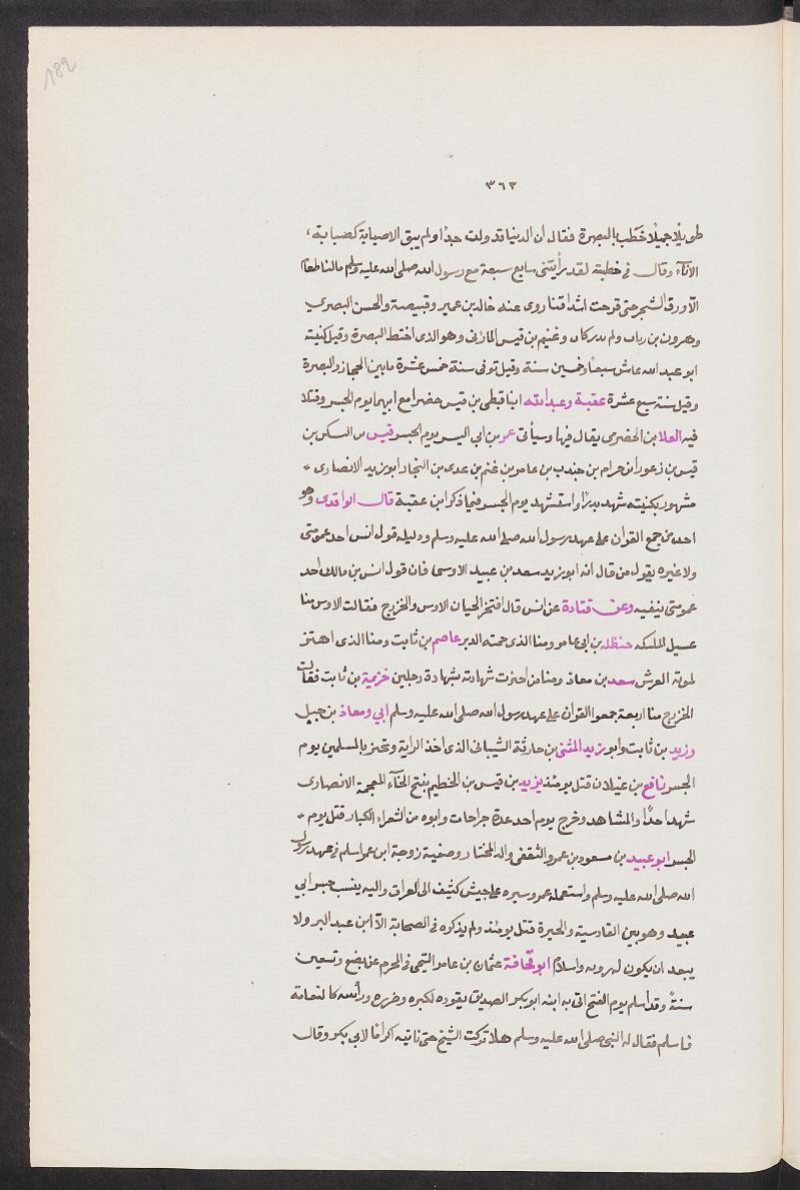 182
٣٦٢
طويلًا جميلًا خطب بالبصرة فقال ان الدنيا قد ولت حذا ولم يبق الا صبابة كصبابة
الاناء وقال في خطبته لقد رأيتني سابع سبعة مع رسول الله صلى الله عليه وسلم مالنا طعام
الا ورق الشجر حتى قرحت اشداقنا روى عنه خالد بن عمير وقبيصة والحسن البصري
وهرون بن رياب ولم يدركاه وغنيم بن قيس المازني وهو الذى اختط البصرة وقيل كنيته
ابو عبد الله عاش سبعا وخمسين سنة وقيل توفى سنة خمس عشرة ما بين الحجاز والبصرة
وقيل سنة سبع عشرة عقبة وعبد الله ابنا قبطى بن قيس حضرا مع ابيهما يوم الجسر وقتلا
فيه العلا بن الحضرمى يقال فيها وسيأتى عمر بن ابي اليسر يوم الجسر قيس بن السكن بن
قيس بن زعورا بن حرام بن جندب بن عامر بن غنم بن عدى بن النجار ابو زيد الانصارى
مشهور بكنيته شهد بدرًا واستشهد يوم الجسر فيما ذكر ابن عقبة قال الواقدى وهو
احد من جمع القران على عهد رسول الله صلى الله عليه وسلم ودليله قول انس احد عمومتى
ولا غيره بقول من قال انه ابو زيد سعد بن عبيد الاوسى فان قول انس بن مالك احد
عمومتى ينفيه وعن قتادة عن انس قال افتخر الحيان الاوس والخزرج فقالت الاوس منا
غسيل الملئكه حنظله بن ابى عامر ومنا الذى حمته الدبر عاصم بن ثابت ومنا الذى اهتز
لموته العرش سعد بن معاذ ومنا من اجزت شهادته بشهادة رجلين خزيمة بن ثابت فقالت
الخزرج منا اربعة جمعوا القران على عهد رسول الله صلى الله عليه وسلم ابي ومعاذ بن جبل
وزيد بن ثابت وابو زيد المثنى بن حارثة الشيبانى الذى اخذ الراية وتحيز بالمسلمين يوم
الجسر نافع بن غيلان قتل يومئذ يزيد بن قيس بن الخطيم بفتح الخاء المعجمة الانصارى
شهد احدًا والمشاهد وخرج يوم احد عدة جراحات وابوه من الشعراء الكبار قتل يوم
الجسر ابو عبيد بن مسعود بن عمرو الثقفى والد المختار وصفية زوجة ابن عمر اسلم في عهد رسول
الله صلى الله عليه وسلم واستعمله عمر وسيره على جيش كثيف الى العراق واليه ينسب جسر ابي
عبيد وهو بين القادسية والحيرة قتل يومئذ ولم يذكره فى الصحابة الا ابن عبد البر ولا
يبعد ان يكون له رويه واسلام ابو قحافة عثمان بن عامر التيمى فى المحرم عن بضع وتسعين
سنة وقد اسلم يوم الفتح اتى به ابنه ابو بكر الصديق يقوده لكبره وضرره ورأسه كالثغامة
فاسلم فقال له النبى صلى الله عليه وسلم هلا تركت الشيخ حتى ناتيه اكرامًا لابي بكر وقال